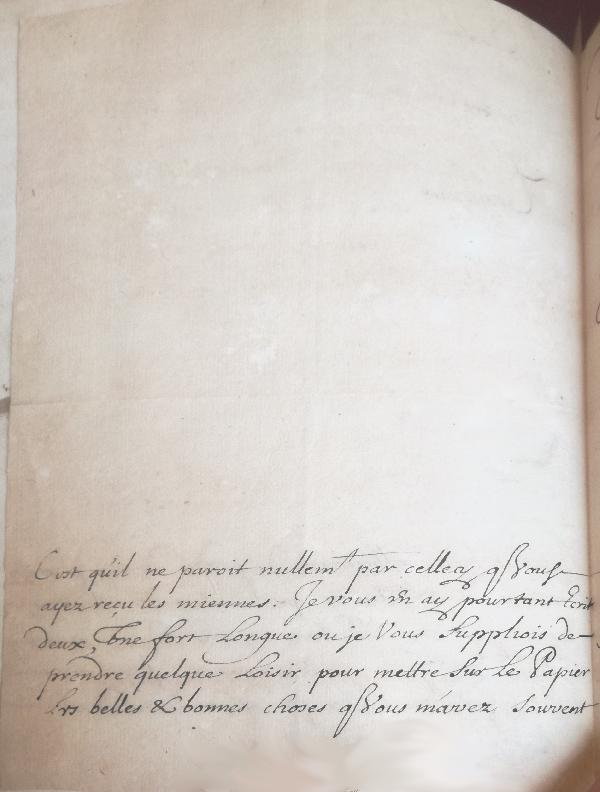 C'est qu'il ne paroit nullemt par cellecy q vous
ayez receu les miennes. Je vous en ay pourtant Ecrit
deux, Une fort Longue ou je Vous Suppliois de
prendre quelque Loisir pour mettre Sur le Papier
les belles & bonnes choses q Vous m'avez souvent